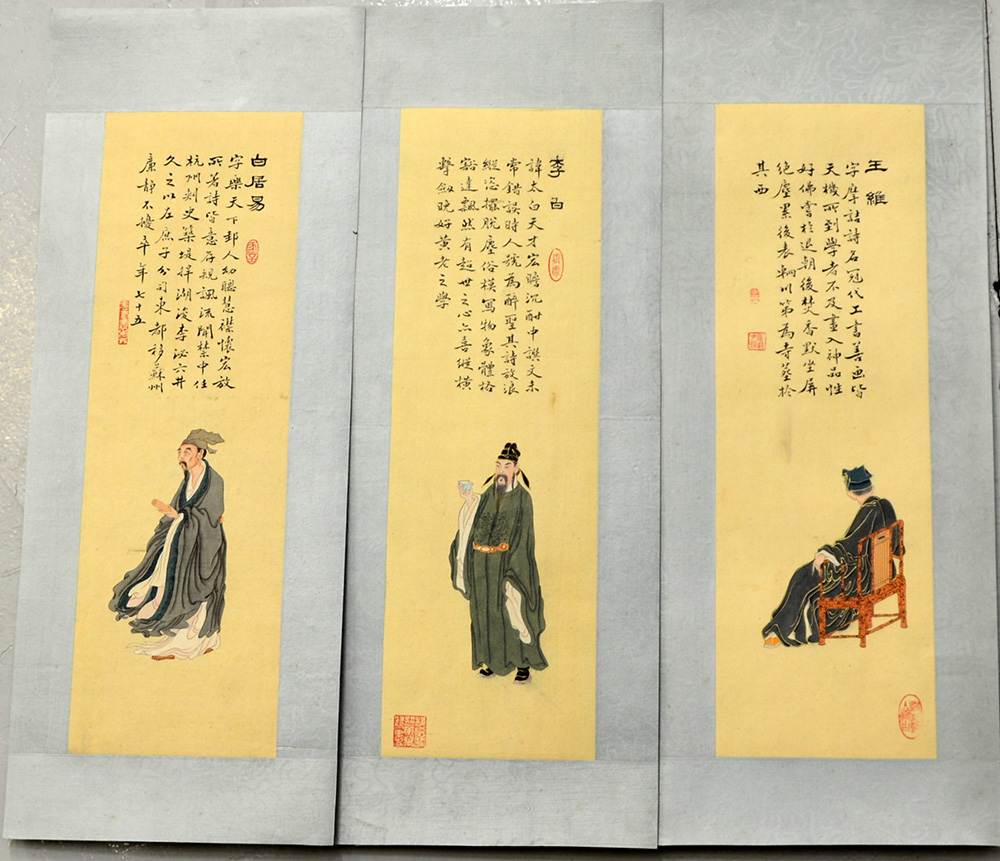 王維
字摩詰詩名冠代工書善画皆
天機所到學者不及畫入神品性
好佛嘗於退朝後焚香默坐屏
絕塵累後表輞川第為寺葬於
其西
李白
諱太白天才宏贍沉酣中譔文未
常錯誤時人號為醉聖其詩放浪
縱恣擺脫塵俗模寫物象體格
豁達飄然有超世之心亦喜縱橫
擊劍晚好黃老之學
白居易
字樂天下邽人幼聰慧襟懷宏放
所著詩皆意存規諷流聞禁中任
杭州刺史築堤捍湖浚李泌六井
久之以左庶子分司東都移蘇州
廉靜不擾卒年七十五